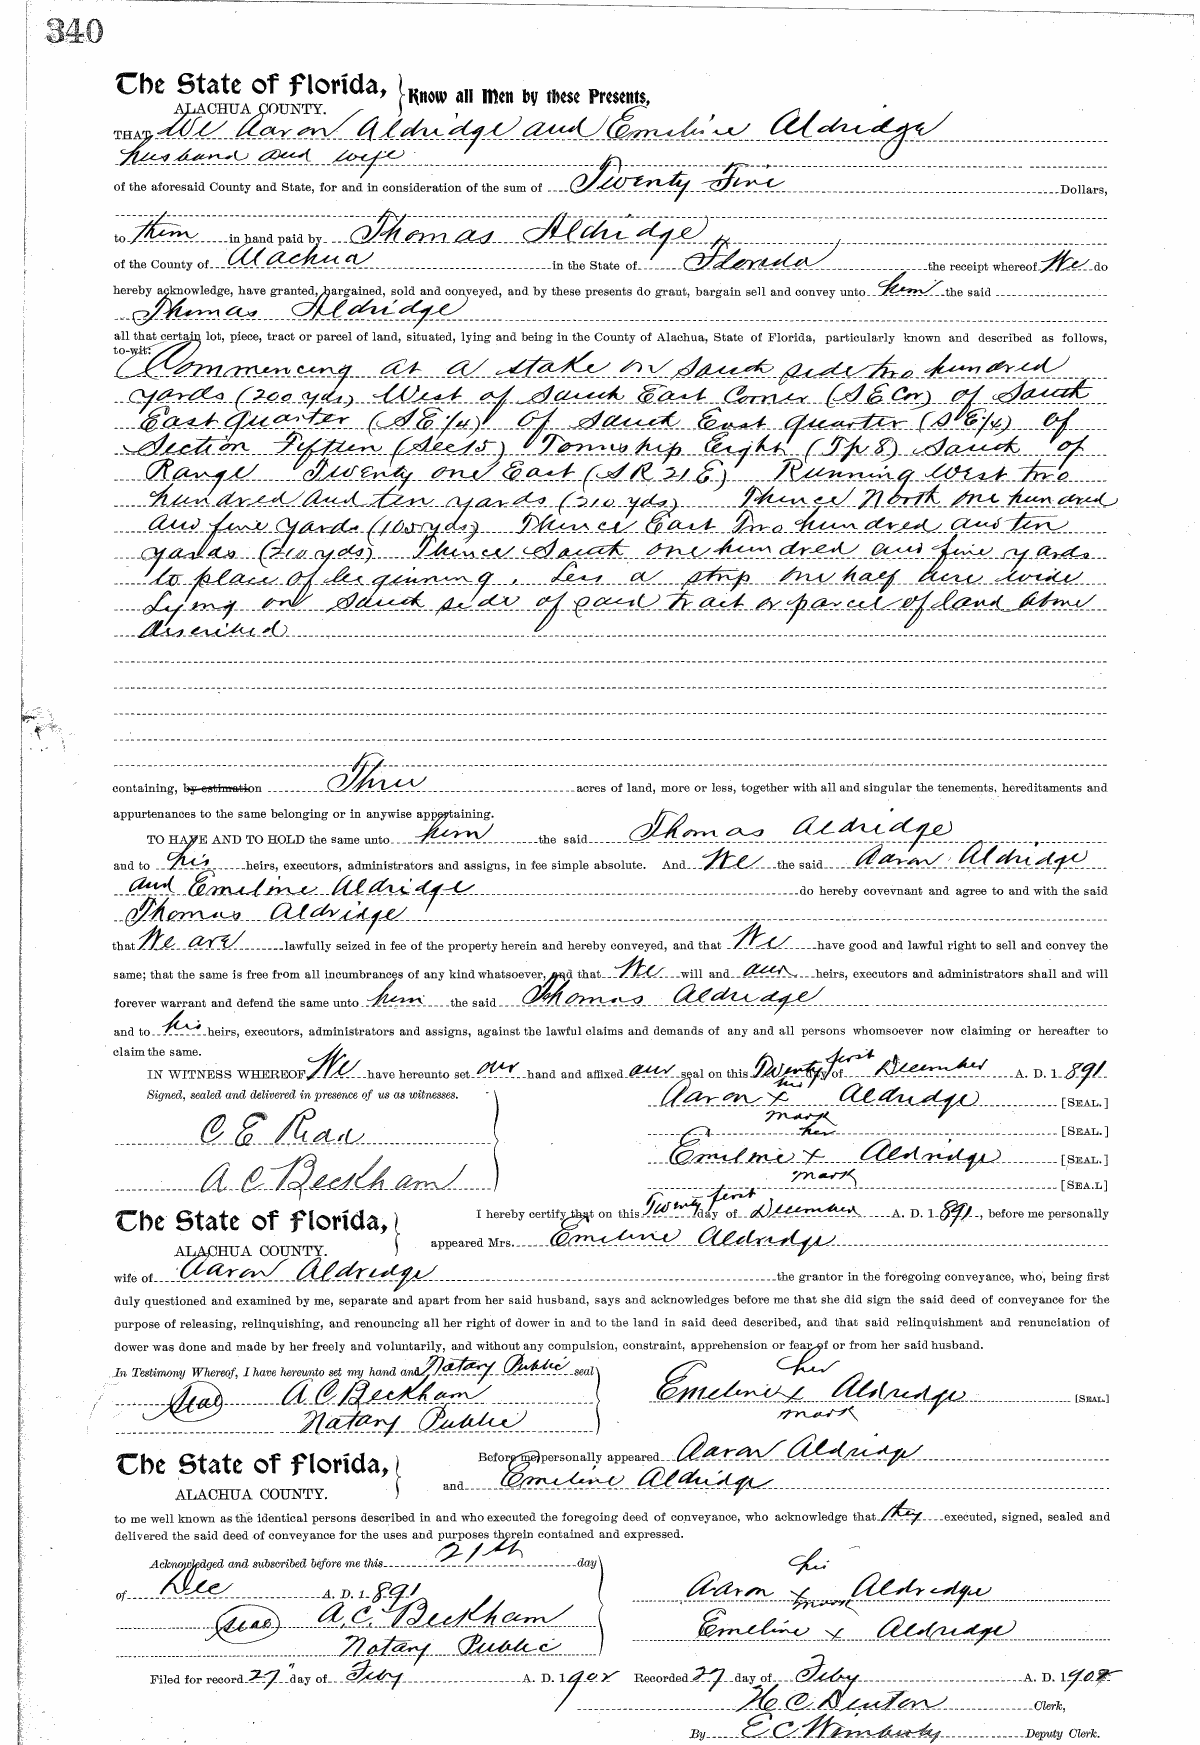 340
The State of Florida,
ALACHUA COUNTY.
Know all Men by these Presents,
THAT We Aaron Aldridge and Emeline Aldridge
husband and wife
of the aforesaid County and State, for and in consideration of the sum of Twenty Five Dollars,
to them in hand paid by Thomas Aldridge
of the County of Alachua in the State of Florida the receipt whereof We do
hereby acknowledge, have granted, bargained, sold and conveyed, and by these presents do grant, bargain sell and convey unto him the said
Thomas Aldridge
all that certain lot, piece, tract or parcel of land, situated, lying and being in the County of Alachua, State of Florida, particularly known and described as follows,
to-wit:
Commencing at a stake on South side two hundred
yards (200 yds) West of South East Corner (S E Cor) of South
East quarter (S E 1/4) of South East quarter (S E 1/4) of
Section Fifteen (Sec 15) Township Eight (Tp 8) South of
Range Twenty one East (S R 21 E) Running West two
hundred and ten yards (210 yds) Thence North one hundred
and five yards (105 yds) Thence East Two hundred and ten
yards (210 yds) Thence South one hundred and five yards
to place of beginning. Less a strip one half acre wide
Lying on South side of said tract or parcel of land above
described
containing, by estimation Three acres of land, more or less, together with all and singular the tenements, hereditaments and
appurtenances to the same belonging or in anywise appertaining.
TO HAVE AND TO HOLD the same unto him the said Thomas Aldridge
and to his heirs, executors, administrators and assigns, in fee simple absolute. And We the said Aaron Aldridge
and Emeline Aldridge do hereby covevnant and agree to and with the said
Thomas Aldridge
that We are lawfully seized in fee of the property herein and hereby conveyed, and that We have good and lawful right to sell and convey the
same; that the same is free from all incumbrances of any kind whatsoever, and that We will and our heirs, executors and administrators shall and will
forever warrant and defend the same unto him the said Thomas Aldridge
and to his heirs, executors, administrators and assigns, against the lawful claims and demands of any and all persons whomsoever now claiming or hereafter to
claim the same.
IN WITNESS WHEREOF We have hereunto set our hand and affixed our seal on this Twenty first day of December A. D. 1891
Signed, sealed and delivered in presence of us as witnesses.
his
Aaron x Aldridge [SEAL.]
mark
C E Read
her [SEAL.]
Emeline x Aldridge [SEAL.]
A C Beckham
mark [SEA.L]
The State of Florida,
ALACHUA COUNTY.
I hereby certify that on this Twenty first day of December A. D. 1891, before me personally
appeared Mrs. Emeline Aldridge
wife of Aaron Aldridge the grantor in the foregoing conveyance, who, being first
duly questioned and examined by me, separate and apart from her said husband, says and acknowledges before me that she did sign the said deed of conveyance for the
purpose of releasing, relinquishing, and renouncing all her right of dower in and to the land in said deed described, and that said relinquishment and renunciation of
dower was done and made by her freely and voluntarily, and without any compulsion, constraint, apprehension or fear of or from her said husband.
In Testimony Whereof, I have hereunto set my hand and Notary Public seal
her
(Seal) A C Beckham
Emeline x Aldridge [SEAL.]
mark
Notary Public
The State of Florida,
ALACHUA COUNTY.
Before me personally appeared Aaron Aldridge
and Emeline Aldridge
to me well known as the identical persons described in and who executed the foregoing deed of conveyance, who acknowledge that they executed, signed, sealed and
delivered the said deed of conveyance for the uses and purposes therein contained and expressed.
Acknowledged and subscribed before me this 21th day
of Dec A. D. 1891
his
Aaron x Aldridge
mark
(Seal) A. C. Beckham
Emeline x Aldridge
Notary Public
Filed for record 27" day of Feby A. D. 1902 Recorded 27 day of Feby A. D. 1902
H C Denton Clerk,
By E C Wimberly Deputy Clerk.